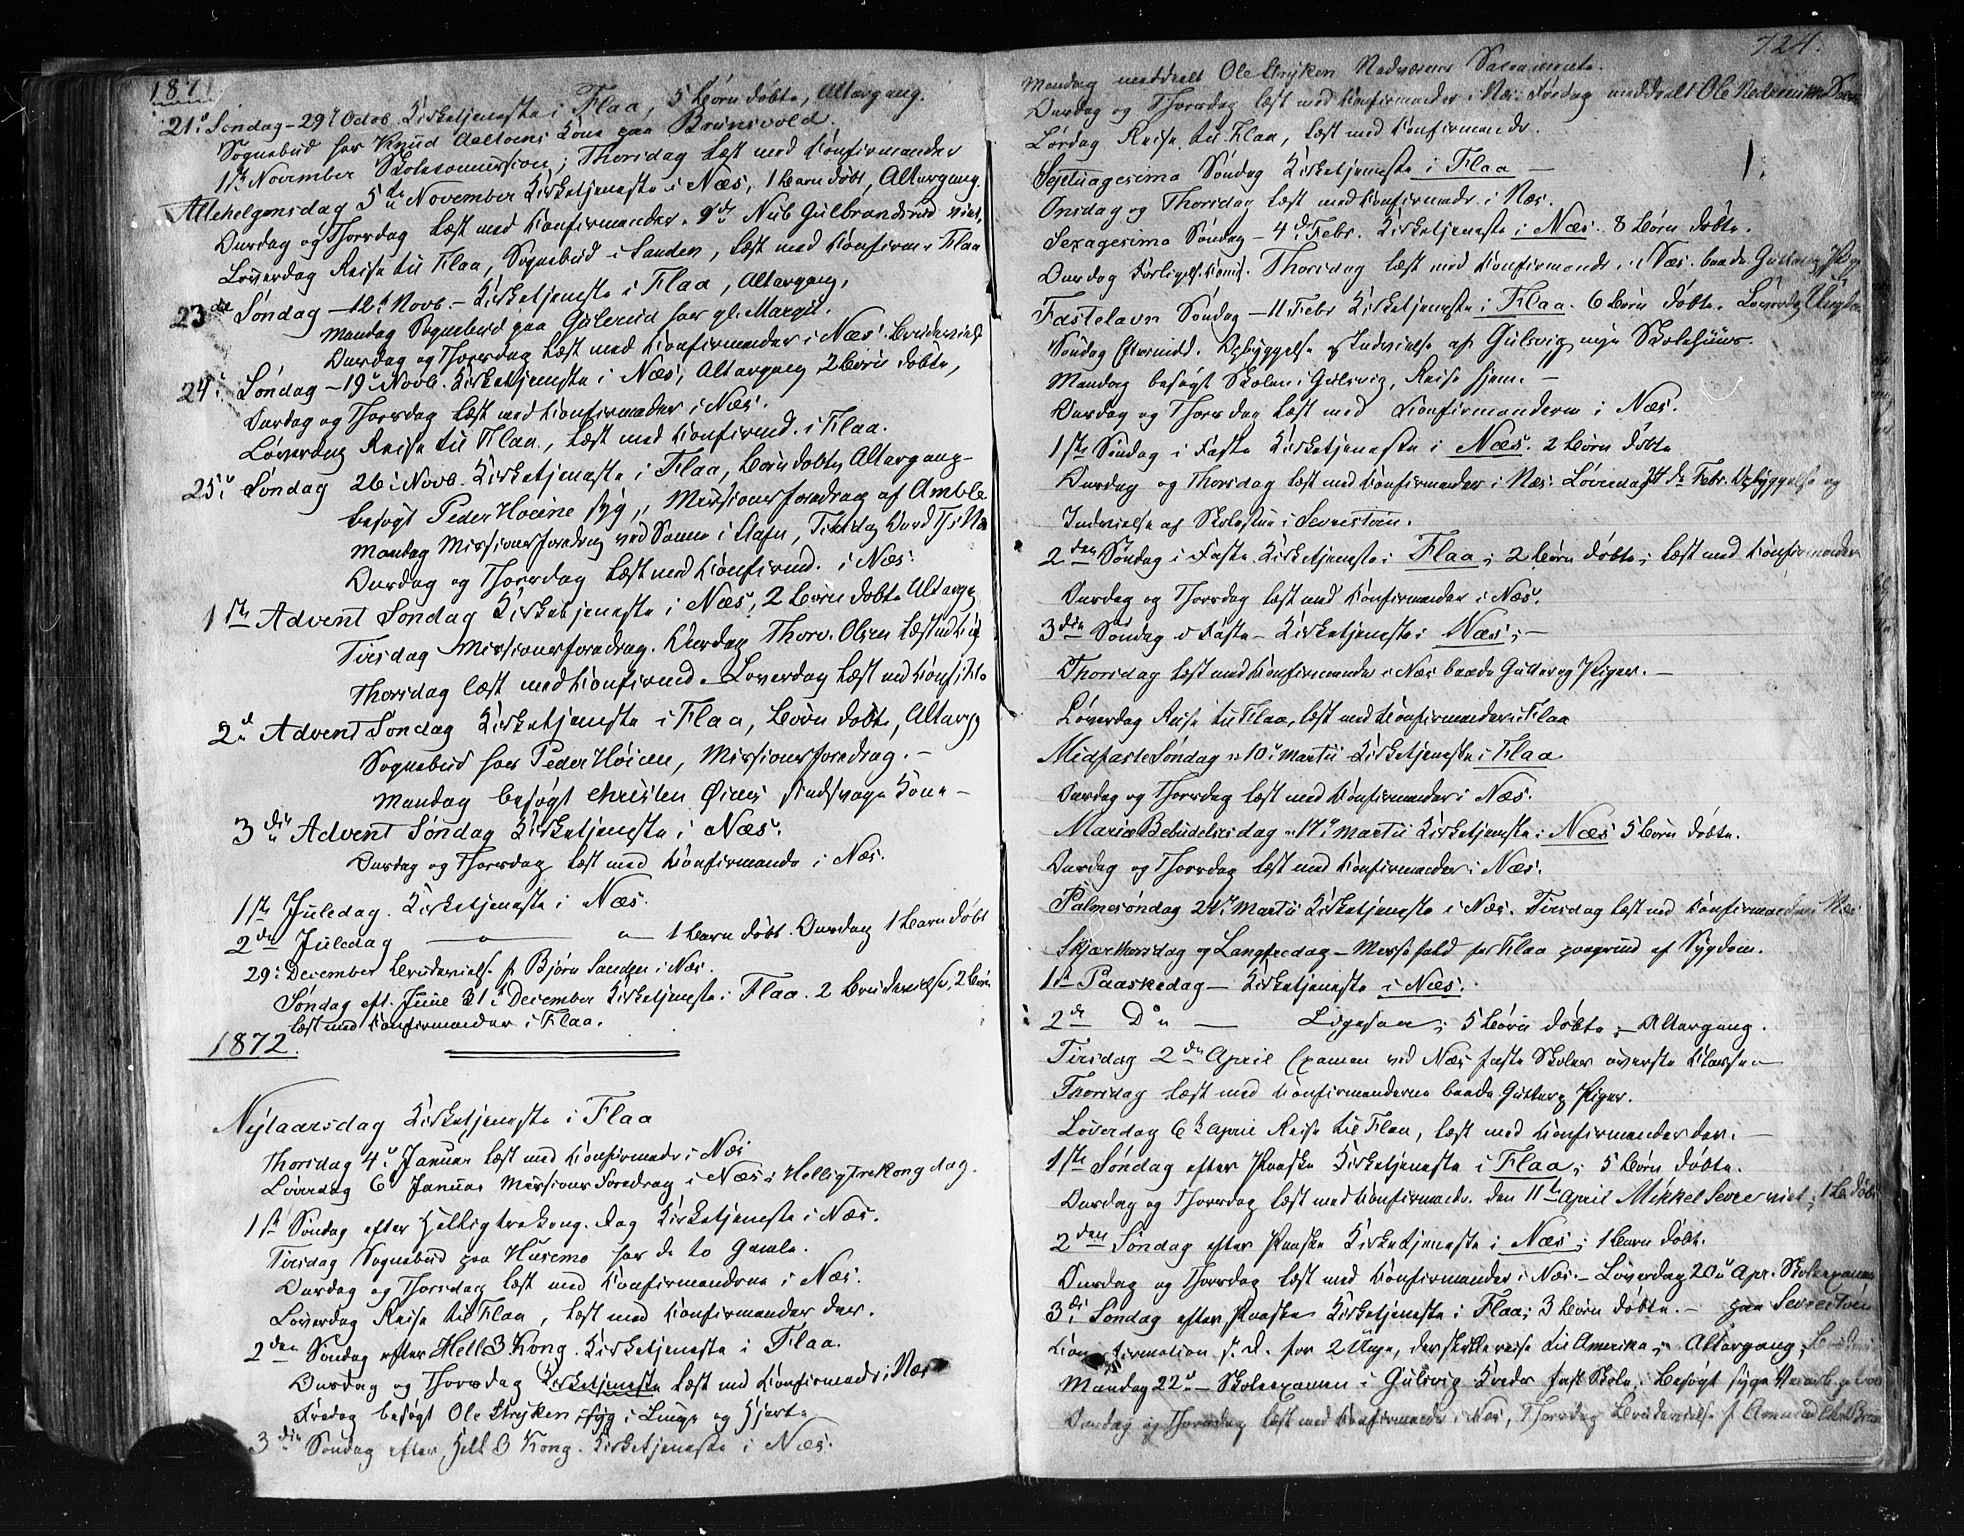 1871
21. Søndag – 29 Octob. Kirketjeneste i Flaa, 5 Børn døbte, Altergang.
Sognebud hos Knud Kone paa Brunsvold.
1ste November Skolecommission; Thorsdag læst med Konfirmander
Allehelgensdag 5te November Kirketjeneste i Næs, 1 Barn døbt, Altergang.
Onsdag og Thorsdag læst med Konfirmander. 9de Nub Gulbrandsrud viet.
Løverdag Reise til Flaa, Sognebud i Sanden, læst med Konfirm i Flaa
23de Søndag – 12te Novb. – Kirketjeneste i Flaa, Altergang,
Mandag Sognebud paa Gulsrud hos gl. Margit.
Onsdag og Thorsdag læst med Konfirmander i Næs. Brudevielse
24. Søndag – 19. Novb. Kirketjeneste i Næs, Altergang 2 Børn døbte,
Onsdag og Thorsdag læst med Konfirmander i Næs.
Løverdag Reise til Flaa, læst med Konfirmd. i Flaa.
25. Søndag 26. Novb. Kirketjeneste i Flaa, Børn døbte, Altergang –
besøgt Peder Høiene syg, Missionsforedrag af Amble
Mandag Missionsforedrag ved Samme i Stafn, Tirsdag
Onsdag og Thorsdag læst med Konfirmd. i Næs.
1ste Advent Søndag Kirketjeneste i Næs, 2 Børn døbte Altergg
Tirsdag Missionsforedrag. Onsdag Thorv. Olsen læst
Thorsdag læst med Konfirmd. Løverdag læst med Konf i Fla
2d Advent Søndag Kirketjeneste i Flaa, Børn døbte, Altergg
Sognebud hos Peder Høiene, Missionsforedrag. –
Mandag besøgt Christen Øines sindsvage Kone –
3die Advent Søndag Kirketjeneste i Næs.
Onsdag og Thorsdag læst med Konfirmande i Næs.
1ste Juledag. Kirketjeneste i Næs.
2den Juledag – " – " – 1 Barn døbt. Onsdag 1 Barn døbt
29. December Brudevielse f Bjørn Sanden i Næs.
Søndag eft. Juul 31te December Kirketjeneste i Flaa. 2 Brudevielse, 2 Børn
læst med Konfirmander i Flaa.
1872.
Nytaarsdag Kirketjeneste i Flaa
Thorsdag 4. Januar læst med Konfirmadr i Næs
Løverdag 6. Januar Missions Foredrag i Næs. Helligtrekongdag.
1ste Søndag efter Helligtrekong. Dag Kirketjeneste i Næs.
Tirsdag Sognebud paa Husemo hos de to Gamle.
Onsdag og Thorsdag læst med Konfirmanderne i Næs.
Løverdag Reise til Flaa, læst med Konfirmander der.
2den Søndag efter Hell 3 Kong. Kirketjeneste i Flaa.
Onsdag og Thorsdag Kirketjeneste læst med Konfirmadr i Næs
Fredag besøgt Ole Stryken, syg i Lunge og Hjerte
3die Søndag efter Hell 3 Kong. Kirketjeneste i Næs.
724.
Mandag meddeelt Ole Stryken Nadverens Sacramente.
Onsdag og Thorsdag læst med Konfirmander i Næs. Fredag meddeelt Ole
Lørdag Reise til Flaa, læst med Konfirmandr.
Septuagesima Søndag Kirketjeneste i Flaa –
1.
Onsdag og Thorsdag læst med Konfirmandr i Næs.
Sexagesima Søndag – 4de Febr. Kirketjeneste i Næs. 8 Børn døbte.
Onsdag Forligels. Komis. Thorsdag læst med Konfirmandr i Næs. baade Gutter og Pig
Fastelavn Søndag – 11 Febr Kirketjeneste i Flaa. 6 Børn døbte. Løverdg
Søndag Eftermidd. Opbyggelse og Indvielse af Gulsvig nye Skolehuus.
Mandag besøgt Skolen i Gulsvig, Reise hjem. –
Onsdag og Thorsdag læst med Konfirmanderne i Næs.
1ste Søndag i Faste Kirketjeneste i Næs. 2 Børn døbte
Onsdag og Thorsdag læst med Konfirmander i Næs. Løverdag 24de Febr. Opbyggelse og
Indvielse af Skolestue i Sevrestøen.
2den Søndag i Faste Kirketjeneste i Flaa; 2 Børn døbte; læst med Konfirmander
Onsdag og Thorsdag læst med Konfirmander i Næs.
3die Søndag i Faste – Kirketjeneste i Næs; –
Thorsdag læst med Konfirmander i Næs baade Gutter og Piger. –
Løverdag Reise til Flaa, læst med Konfirmander i Flaa
Midfaste Søndag 10. Martii Kirketjeneste i Flaa
Onsdag og Thorsdag læst med Konfirmander i Næs.
Mariæ Bebudelsesdag 17. Martii Kirketjeneste i Næs 5 Børn døbte.
Onsdag og Thorsdag læst med Konfirmander i Næs.
Palmesøndag 24. Martii Kirketjeneste i Næs. Tirsdag læst med Konfirmander i Næs
Skjærthorsdag og Langfredag – Messefald for Flaa paagrund af Sygdom.
1ste Paaskedag – Kirketjeneste i Næs.
2de Do – Ligesaa; 5 Børn døbte; – Altergang.
Tirsdag 2den April Examen ved Næs faste Skoles øverste Klasse –
Thorsdag læst med Konfirmanderne baade Gutter og Piger.
Løverdag 6te April Reise til Flaa, læst med Konfirmander der. –
1ste Søndag efter Paaske Kirketjeneste i Flaa; 5 Børn døbte.
Onsdag og Thorsdag læst med Konfirmandr. den 11te April Mikkel Sevre viet; 1 B. døbt
2den Søndag efter Paaske Kirketjeneste i Næs; 1 Barn døbt.
Onsdag og Thorsdag læst med Konfirmander i Næs. – Løverdag 20. Apr. Skoleexamen
3die Søndag efter Paaske Kirketjeneste i Flaa; 3 Børn døbte. – paa Sevrestøen
Konfirmation s. D. for 2 Unge, der skulle reise til Amerika; Altergang;
Mandag 22. – Skoleexamen i Gulsvig Kreds faste Skole; besøgt syge
Onsdag og Thorsdag læst med Konfirmandr i Næs, Thorsdag Brudevielse f Amund